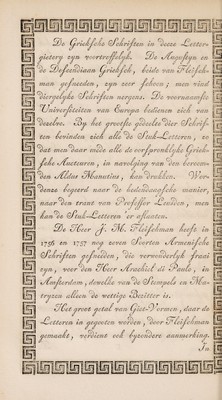 De Grieksche Schriften in deeze Letter-
gietery zyn voortreffelyk. De Augustyn en
de Defcendiaan Grieksch, beide van Fleisch-
man gesneeden, zyn zeer schoon; men vind
diergelyke Schriften nergens. De voornaamste
Universiteiten van Europa bedienen zich van
dezelve. By het grootste gedeelte dier Schrif-
ten bevinden zich alle de Stuk-Letteren, zo
dat men daar mede alle de oorspronklyke Griek-
sche Aucteuren, in navolging van den beroem-
den Aldus Manutius, kan drukken. Wor-
denze begeerd naar de hedendaagsche manier,
naar den trant van Professor Leusden, men
kan de Stuk-Letteren er aflaaten.
De Heer J. M. Fleischman heeft in
1756 en 1757 nog zeven Soorten Armenische
Schriften gesneden, die verwonderlyk fraai
zyn, voor den Heer Arachiel di Paulo, in
Amsterdam, dewelke van de Stempels en Ma-
tryzen alleen de wettige Bezitter is.
Het groot getal van Giet-Vormen, daar de
Letteren in gegooten werden, door Fleischman
gemaakt, verdient ook byzondere aanmerking.
In